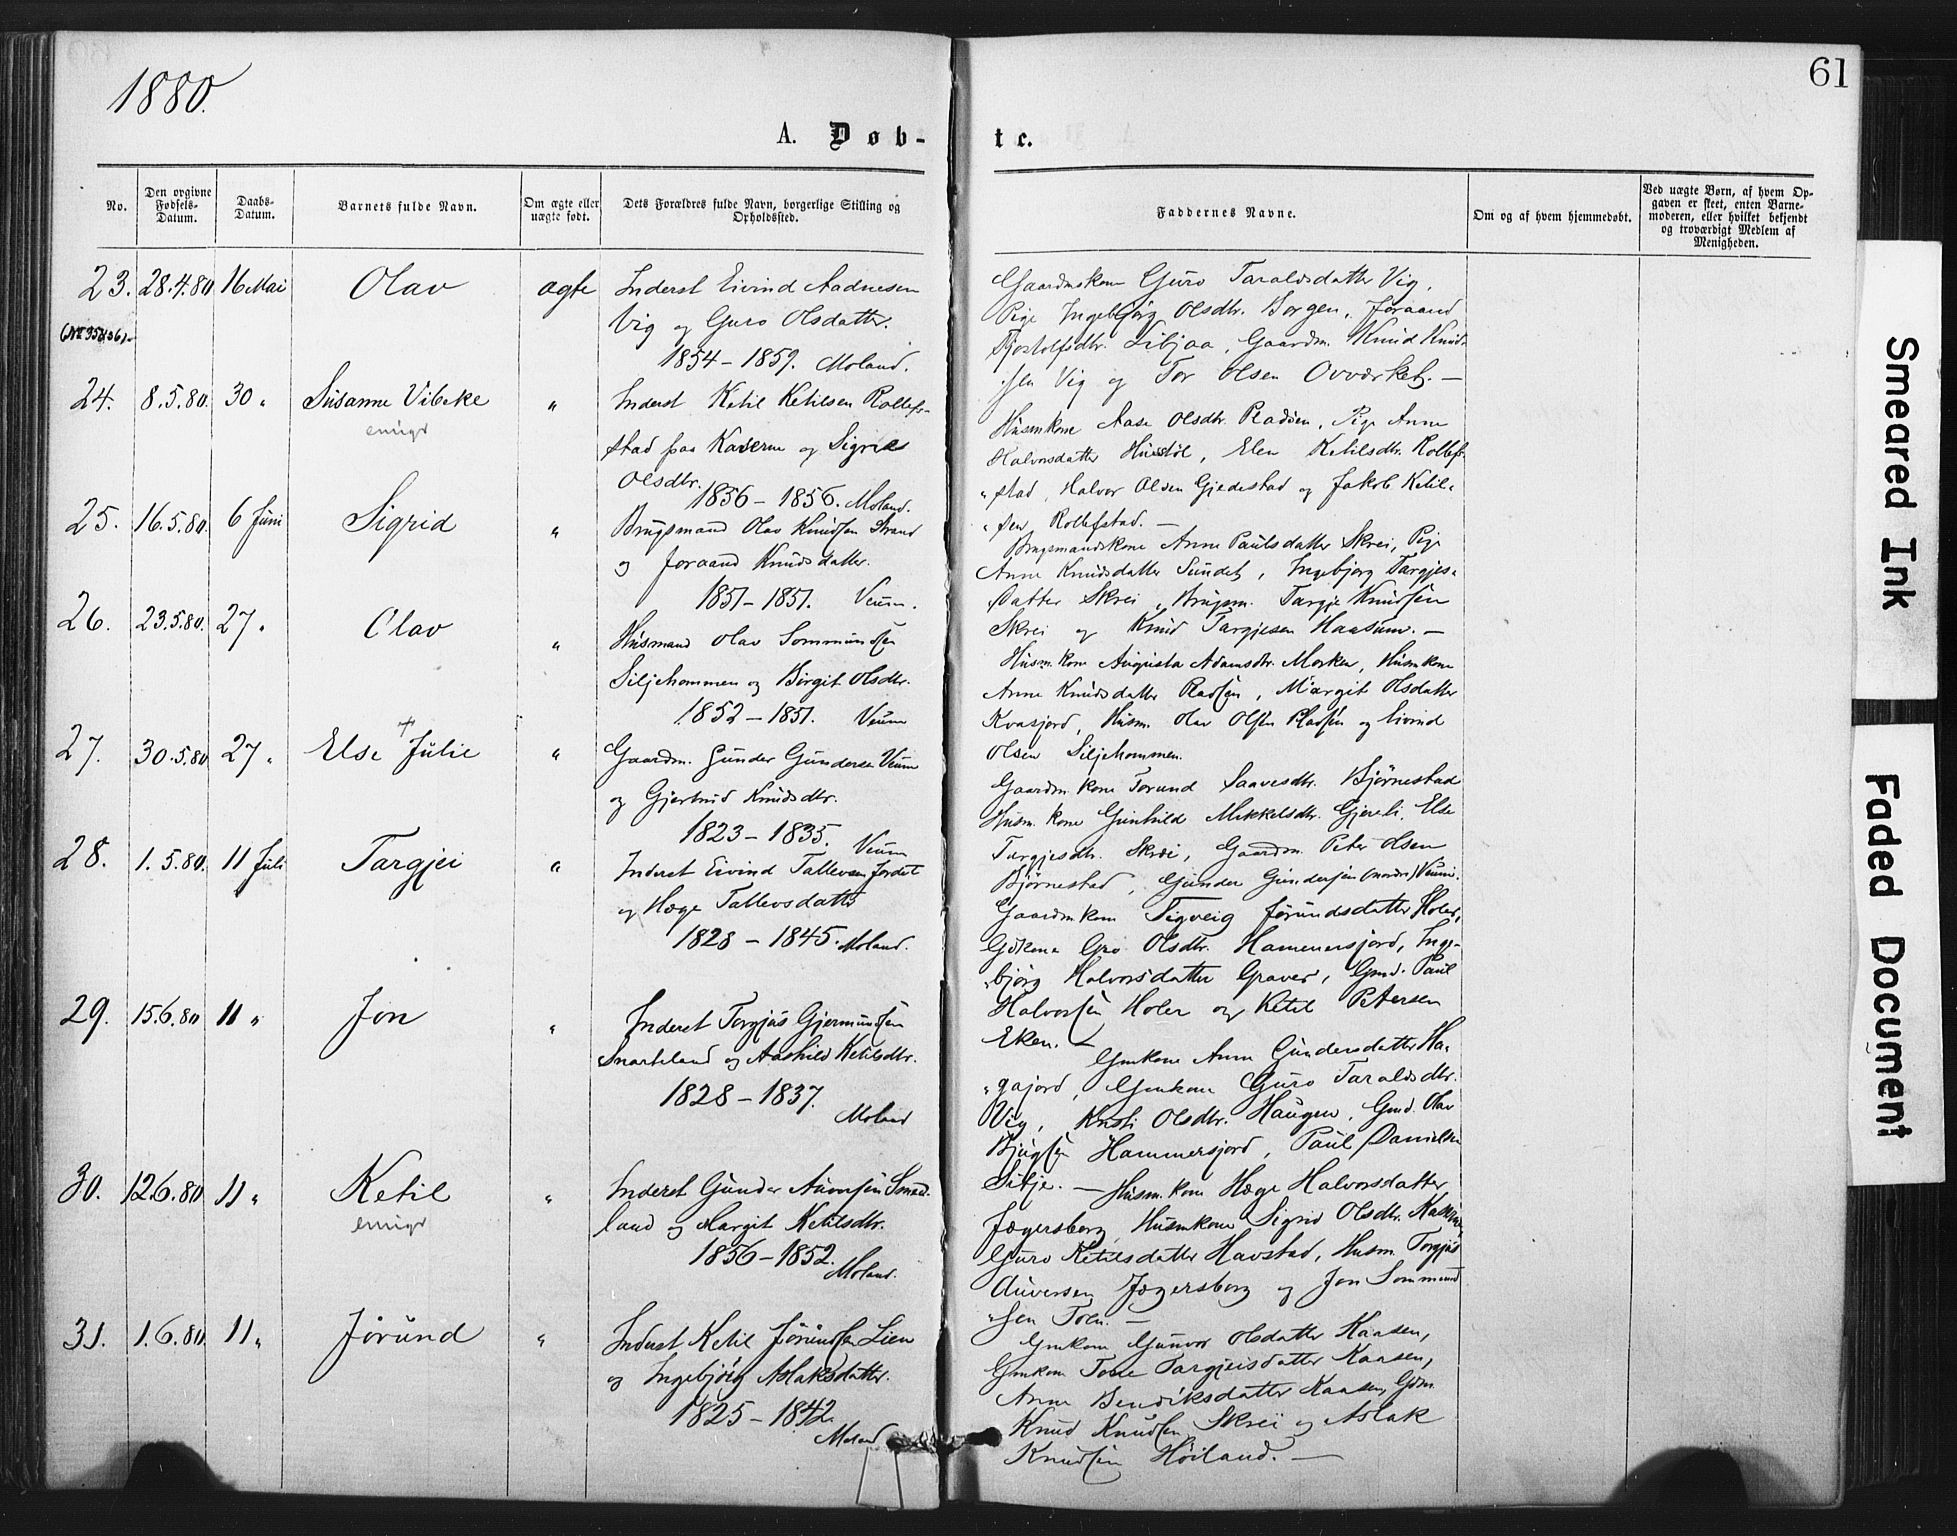 1880.
61
A. Døb-
te.
No.
Den opgivne Fødsels-Datum.
Daabs-Datum.
Barnets fulde Navn.
Om ægte eller uægte født.
Dets Forældres fulde Navn, borgerlige Stilling og Opholdssted.
Faddernes Navne.
Om og af hvem hjemmedøbt.
Ved uægte Børn, af hvem Opgaven er skeet, enten Barnemoderen, eller hvilket bekjendt og troværdigt Medlem af Menigheden.
23. 28.4.80 16 Mai Olav ægte Inderst Eivind Aadnesen
Vig og Guro Olsdatter.
1854 - 1859. Moland.
Gaardmskone Guro Taraldsdatter Vig,
Pige Ingebjørg Olsdtr. Borgen, Joraand
Tjostolfsdtr. Libjaa, Gaardm. Knud Knud-
sen Vig og Tor Olsen Ovværket. —
24. 8.5.80. 30 " Susanne Vibeke " Inderst Ketil Ketilsen Rollefs-
emigr
stad paa Kaserne og Sigrid
Olsdtr.
1856 - 1856. Moland.
Husmkone Aase Olsdtr. Pladsen, Pige Anne
Halvorsdatter Husstøl, Elen Ketilsdtr. Rollef-
stad, Halvor Olsen Gjedestad og Jakob Ketil-
sen Rollefstad. —
25. 16.5.80. 6 Juni Sigrid " Brugsmand Olav Knudsen Strand
og Joraand Knudsdatter.
1851 - 1851. Veum.
Brugsmandskone Anne Paulsdatter Skrei, Pige
Anne Knudsdatter Sundet, Ingebjørg Targjes-
datter Skrei, Brugsm. Targje Knudsen
Skrei og Knud Targjesen Haasum. —
26. 23.5.80. 27 " Olav " Husmand Olav Sommundsen
Siljehommen og Birgit Olsdtr.
1852 - 1851. Veum
Husm.kone Augusta Adamsdtr. Morker, Husmkone
Anne Knudsdatter Pladsen, Margit Olsdatter
Kvasjord, Husm. Olav Olsen Pladsen og Eivind
Olsen Siljehommen.
27. 30.5.80 27 " Else + Julie " Gaardm. Gunder Gundersen Veum
og Gjertrud Knudsdtr.
1823 - 1835. Veum
Gaardm.kone Torund Saavesdtr. Bjørnestad
Husm.kone Gunhild Mikkelsdtr. Gjereli, Else
Targjesdtr. Skrei, Gaardm. Peter Olsen
Bjørnestad, Gunder Gundersen (nordre) Veum.
28. 1.5.80. 11 Juli Targjei " Inderst Eivind Tallevsen Jordet
og Hæge Tallevsdatter
1828 - 1845. Moland.
Gaardmkone Sigveig Jørundsdatter Holer,
Gdkone Gro Olsdtr. Hammersjord, Inge-
bjørg Halvorsdatter Graver, Gmd. Paul
Halvorsen Holer og Ketil Petersen
Eken. —
29. 15.6.80 11 " Jon " Inderst Torgjus Gjermundsen
Snarteland og Aashild Ketilsdtr.
1828 - 1837.
Moland
Gmkone Anne Gundersdatter Ha-
gajord, Gmkone Guro Taraldsdtr.
Vig, Kristi Olsdtr. Haugen, Gmd. Olav
Bjugsen Hammersjord, Paul Danielsen
Silje. —
30. 12.6.80. 11 " Ketil " Inderst Gunder Auversen Smed-
emigr
land og Margit Ketilsdtr.
1856 - 1852.
Moland.
Husm.kone Hæge Halvorsdatter
Jægersborg, Husmkone Sigrid Olsdtr.
Guro Ketilsdatter Havstad, Husm. Torgjus
Auversen Jægersborg og Jon Sommund-
sen Toen. —
31. 1.6.80. 11 " Jørund " Inderst Ketil Jørundsen Lien
og Ingebjørg Aslaksdatter.
1825 - 1842.
Moland
Gmkone Gunvor Olsdatter Kaasen,
Gmkone Tone Targjeisdatter Kaasen,
Anne Bendiksdatter Kaasen, Gdm.
Knud Knudsen Skrei og Aslak
Knudsen Høiland. —
Smeared Ink
Faded Document